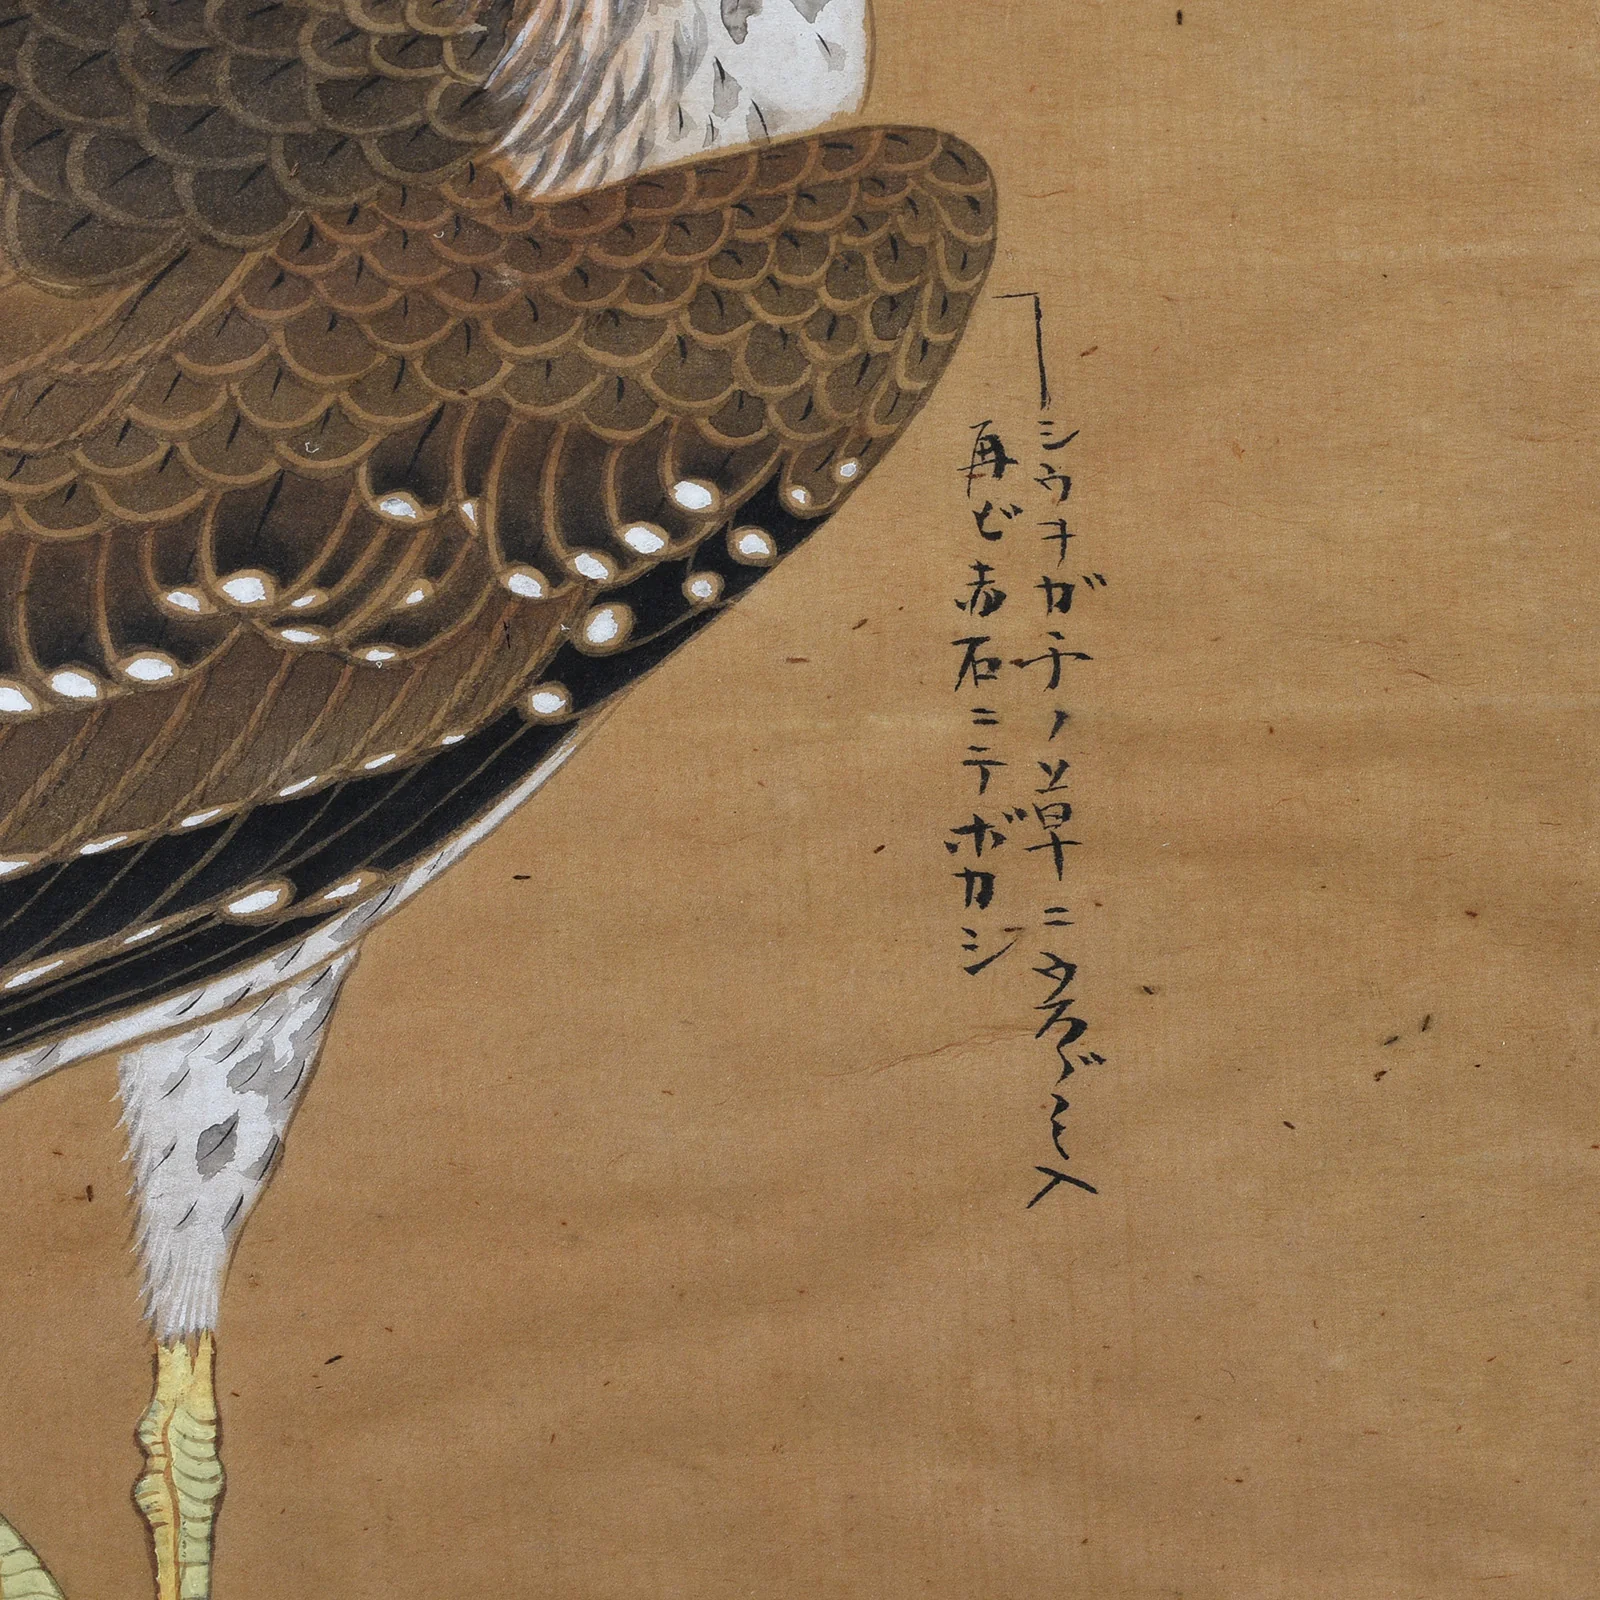 シウキガチノ草ニウスズミ入
再ビ赤石ニテボカシ